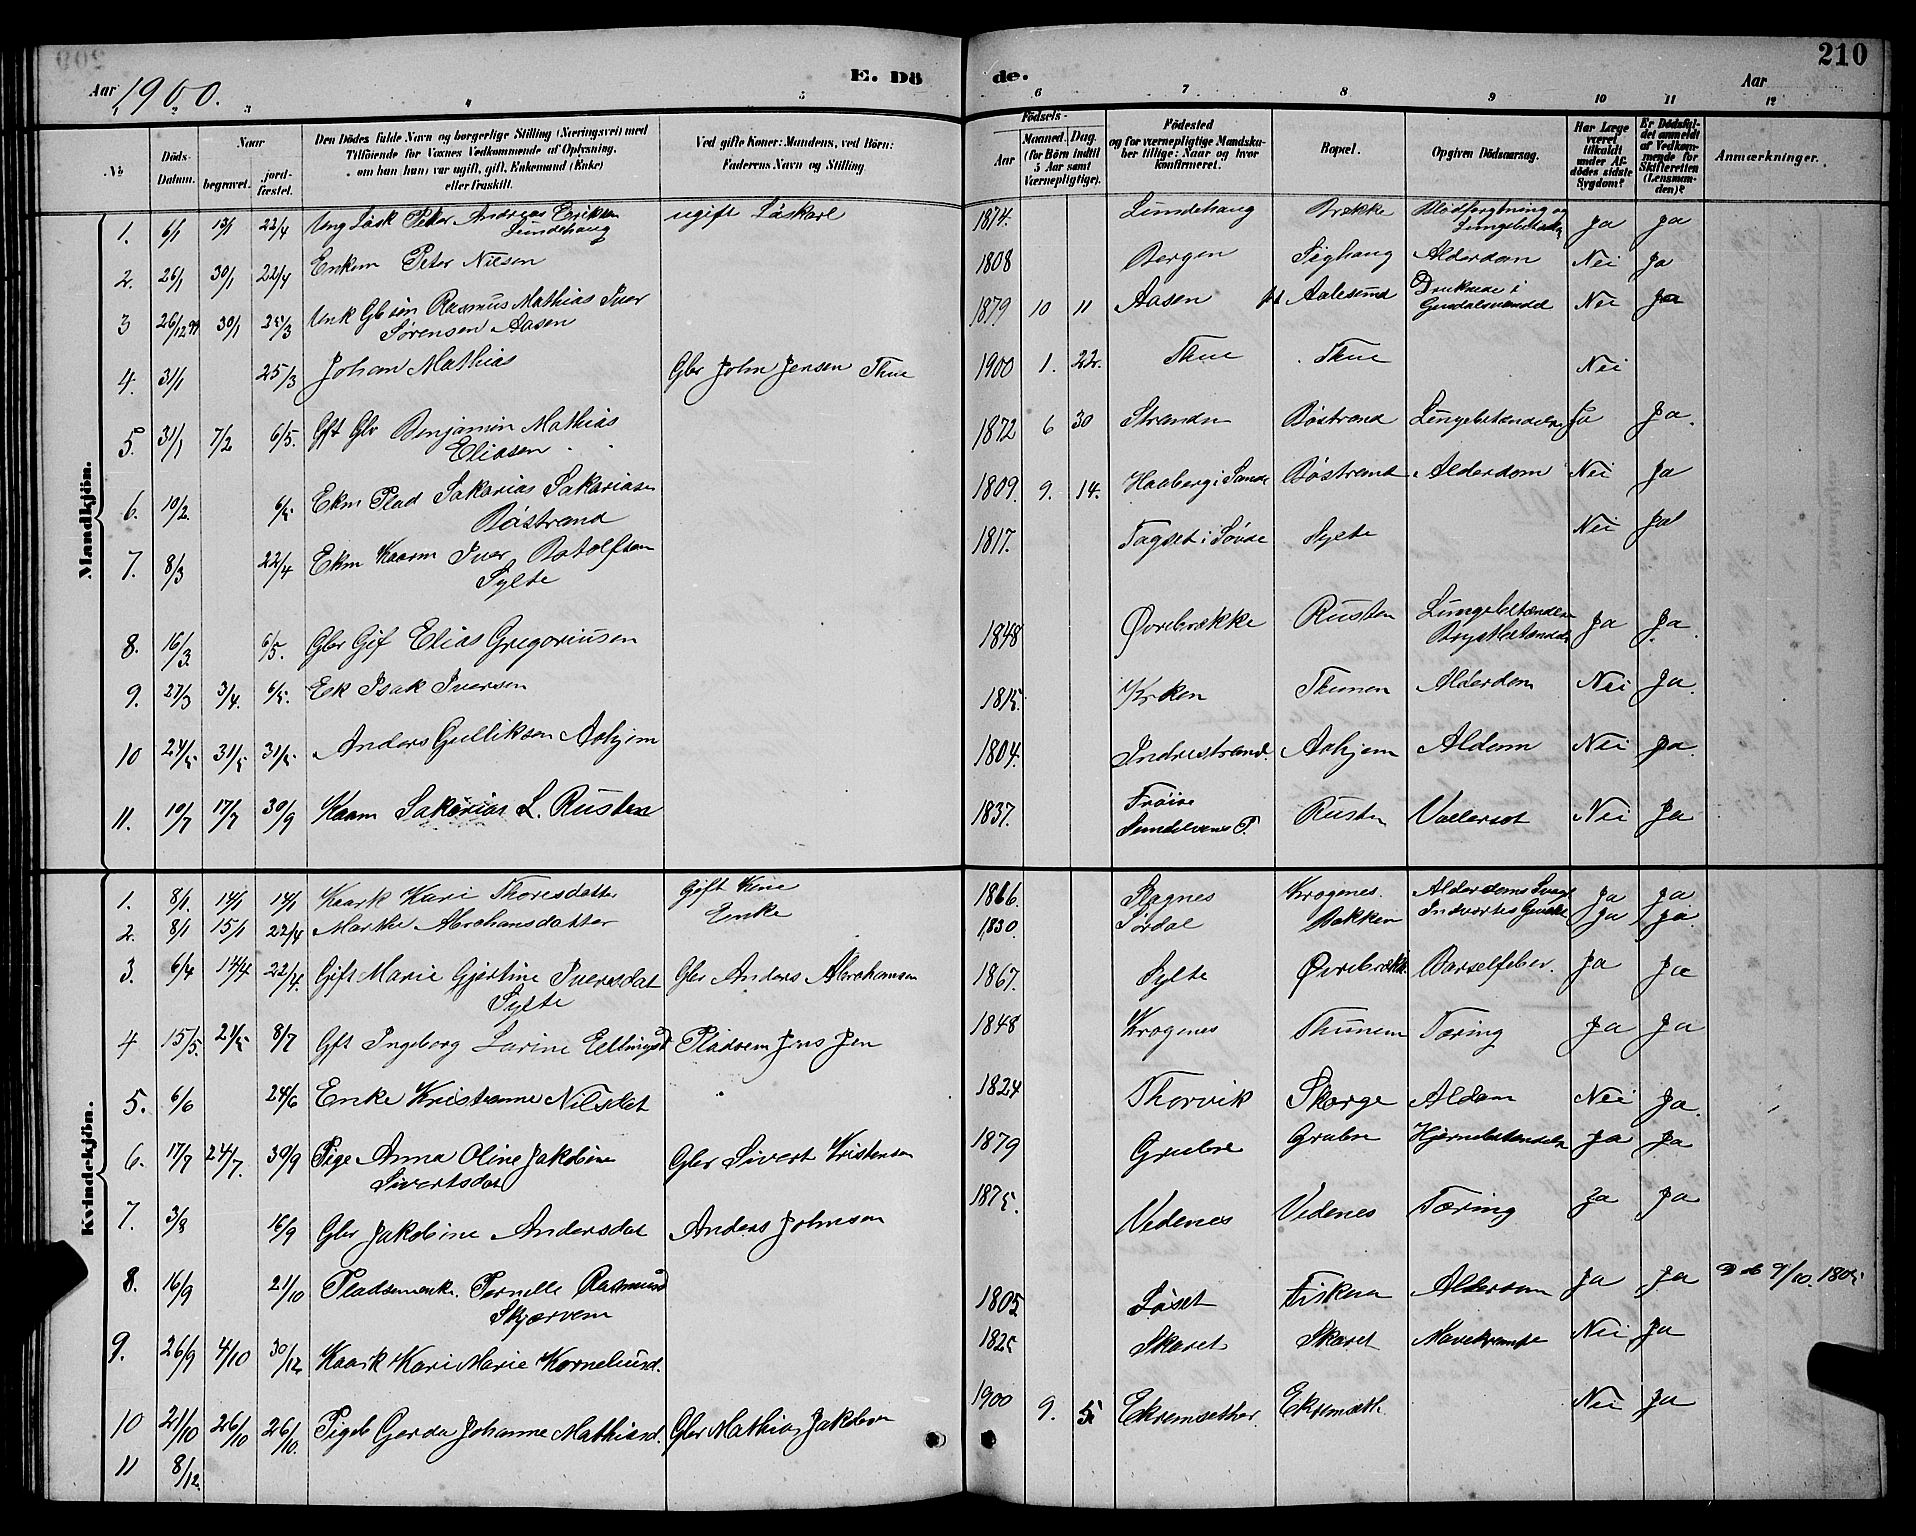 210
Aar 1900.
E. Dö
de.
Aar
3 4 5 6 7 8 9 10 11 12
№
Döds-Datum.
Naar
begravet.
jordfæstet.
Den Dödes fulde Navn og borgerlige Stilling (Næringsvei) med
Tilföiende for Voxnes Vedkommende af Oplysning,
om han (hun) var ugift, gift, Enkemand (Enke)
eller fraskilt.
Ved gifte Koner: Mandens, ved Börn:
Faderens Navn og Stilling.
Födsels-
Aar
Maaned. Dag.
(for Börn indtil
5 Aar samt
Værnepligtige).
Födested
og for værnepligtige Mandska-
ber tillige: Naar og hvor
konfirmeret.
Bopæl.
Opgiven Dödsaarsag.
Har Læge
været
tilkaldt
under Af-
dödes sidste
Sygdom?
Er Dödsfal-
det anmeldt
af Vedkom-
mende for
Skifteretten
(Lensman-
den)?
Anmærkninger.
Mandkjön.
1. 6/1 13/1 22/4 Ung Lösk Peter Andreas Eriksen Lundehaug ugift Löskarl 1874. Lundehaug Brekke Ja Ja
2. 26/1 30/1 22/4 Enkem Peter Nilsen 1808 Bergen Sighaug Alderdom Nei Ja
3 26/12 99 30/1 25/3 Unk Gbrsön Rasmus Mathias Iver Sörensen Aasen 1879 10 11 Aasen Aalesund Druknede i Nei Ja
4. 31/1 25/3 Johan Mathias Gbr John Jensen Thue 1900 1. 22. Thue Thue Nei
5. 31/1 7/2 6/5. Gft Gbr Benjamin Mathias Eliasen 1872 6 30 Stranden Böstrand Lungebetændelse Ja Ja.
6. 10/2. 6/5 Ekm Plad Sakarias Sakariasen Böstrand 1809. 9. 14. Haaberg i Sande Böstrand Alderdom Nei Ja
7. 8/3 22/4 Ekm Kaarm Iver Botolfsen Sylte 1817. Sylte Nei Ja
8. 16/3. 6/5. Gbr Gif Elias Gregoriusen 1848 Øvrebrække Rusten Lungebetænden Brystbetændels Ja Ja.
9. 27/3 3/4. 6/5. Ek Isak Iversen 1815. Thunen Alderdom Nei Ja.
10 24/5 31/5 31/5 Anders Gulliksen Aahjem 1804. Indrestrand. Aahjem Alderm Nei Ja.
11. 10/7 17/7 30/9 Kaarm Sakarias L. Rusten 1837. Fröise Rusten Vattersot Nei Ja
Kvindekjön.
1. 8/1. 14/1 14/1 Kaark Kari Thoresdatter Gift Kone 1866. Slagnes Krogenes. Ja Ja
2. 8/1 15/1 22/4 Marthe Abrahamsdatter Enke 1830. Sördal Bakken Indvortes Ja Ja.
3. 6/4 14/4 22/4. Gift Marie Gjertine Iversdat Sylte Gbr Anders Abrahamsen 1867. Sylte Øvrebrækk. Barselfeber. Ja Ja
4 15/5. 21/5 8/7 Gft Ingeborg Larine Ellingsd Pladsem Jens Jen 1848 Krogenes Thunem Tæring Ja Ja
5. 6/6 24/6 Enke Kristianne Nilsdat 1824 Thorvik Skorge Aldom Nei Ja.
6. 17/7 24/7. 30/9 Pige Anna Oline Jakobine Sivertsdat Gbr Sivert Kristensen 1879 Grubse Grubse Hjernebetændelse Ja Ja
7. 3/8 16/9 Gbr Jakobine Andersdat Anders Johnsen 1875. Vedenes Vedenes Tæring Ja Ja
8. 16/9 21/10 Pladsemenke. Pernelle Rasmusd Skjærvem 1805 Löset Fiskaa Alderdom Ja Ja 9/10 1805
9. 26/9 4/10 30/12 Kaark Kari Marie Korneliusd. 1825 Skaret Skaret Mavekrampe Nei Ja
10 21/10 26/10 26/10. Pigeb Gerda Johanne Mathiasd. Gbr Mathias Jakobsen 1900 9. 5. Ekremsæther Ekremsæth. Nei Ja
11 8/12.